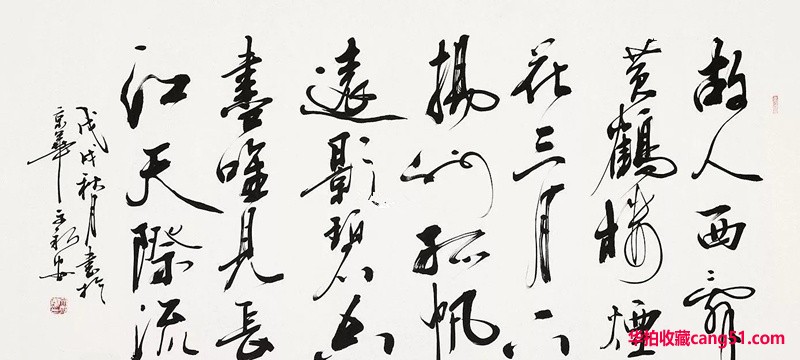 故人西辭
黄鶴樓煙
花三月下
揚州孤帆
遠影碧空
盡唯見長
江天際流
戊戌秋月書於
京華
华拍收藏cang51.com